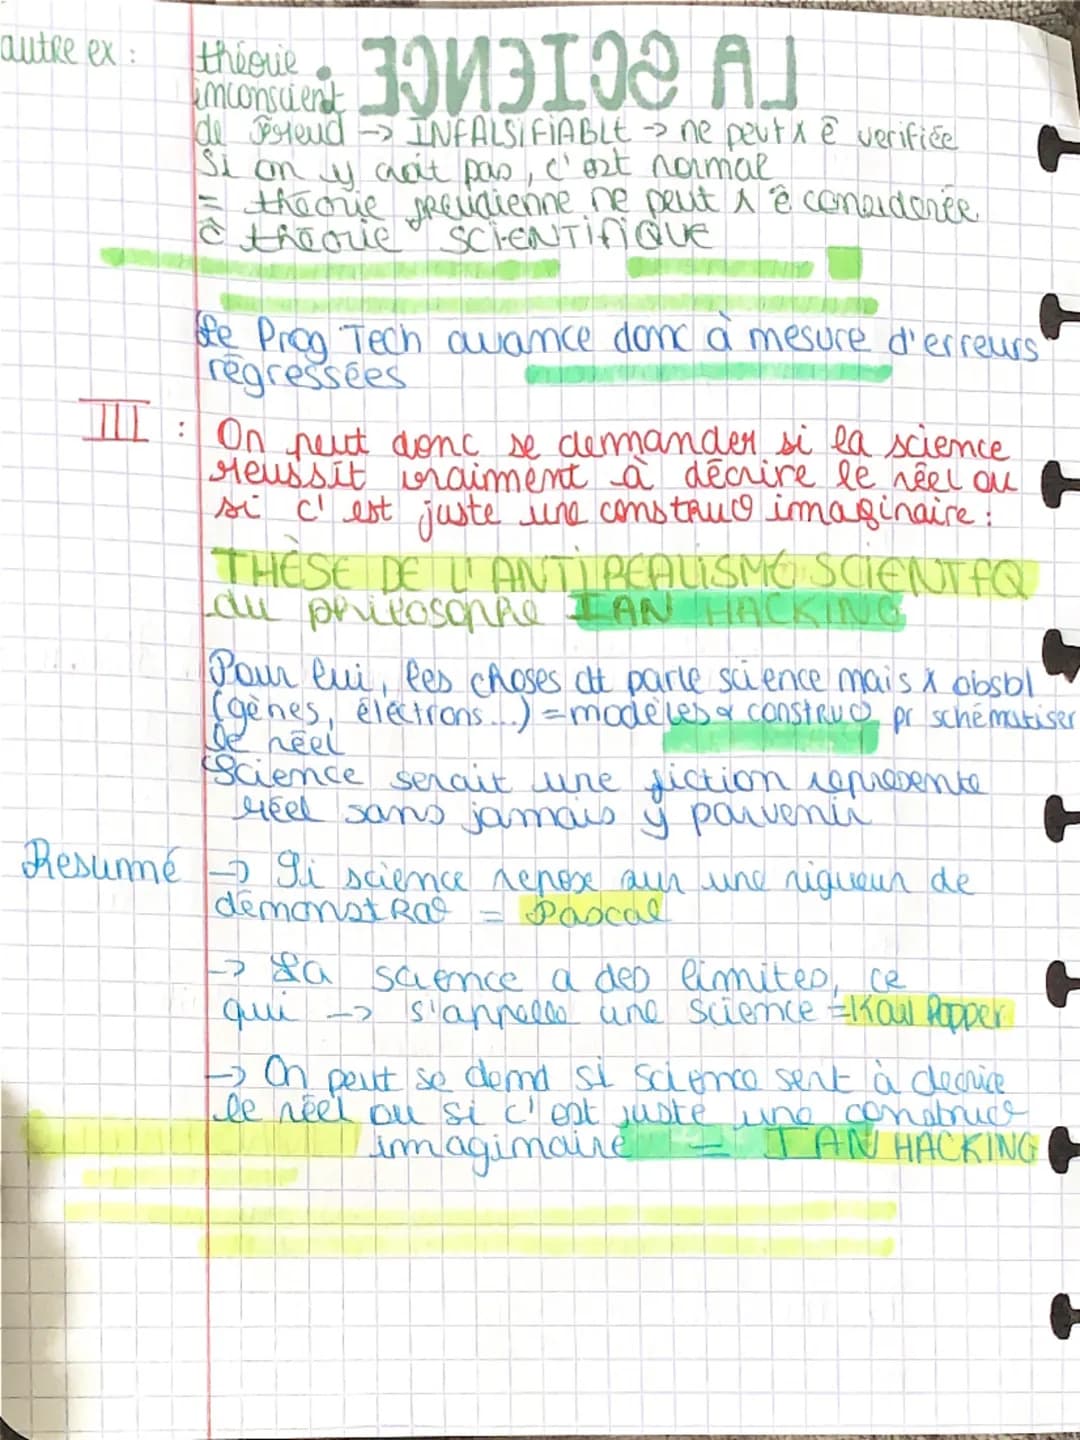 autre ex : théorie
inconscient
LA SCIENCE
de Freud -> INFALSIFIABLE -> ne peut x ê verifiée
Si on y croit pas, c'est normal
= théorie freudienne ne peut x ê considérée
ĉ théorie SCIENTIFIQUE
Le Prog Tech avance donc à mesure d'erreurs
régressées
III : On peut donc se demander si la science
reussit vraiment à décrire le réel ou
si c'est juste une construc° imaginaire :
THÈSE DE L'ANTIREALISME SCIENTFQ
du philosophe IAN HACKING
Pour lui, les choses dt parle science mais x obsbl
(gènes, électrons...) = modèles & construc° pr schématiser
le réel
Science serait une fiction représente
réel sans jamais y parvenir
Resumé -> Si science repose sur une rigueur de
démonstrat° = Pascal
-> La science a des limites, ce
qui -> s'appelle une science = Karl Popper
-> On peut se demd si science sert à decrire
le réel ou si c'est juste une construc°
imaginaire = IAN HACKING